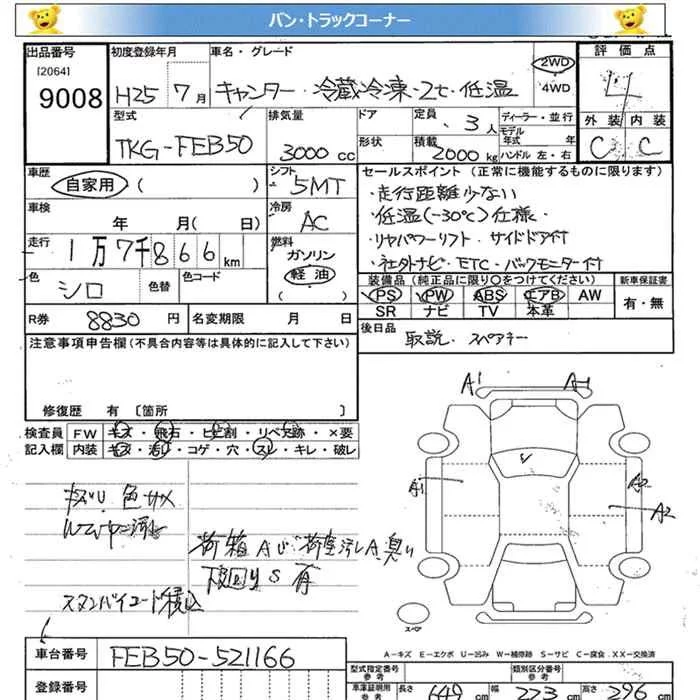 バン・トラックコーナー
出品番号 初度登録年月 車名・グレード 2WD 4WD 評価点
[2064]
9008 H25 7月 キャンター・冷蔵冷凍・2t・低温 4
型式 排気量 ドア 定員 ディーラー・並行 外装 内装
TKG-FEB50 3000cc 形状 3人 モデル年式 年 C C
積載 2000kg ハンドル 左・右
車歴 シフト セールスポイント (正常に機能するものに限ります)
自家用 ( ) 5MT ・走行距離少ない
車検 冷房 ・低温(-30℃)仕様・
年 月(日) AC ・リヤパワーリフト・サイドドア付
走行 燃料 ・社外ナビ・ETC・バックモニター付
1万7千866km ガソリン
軽油
( )
色 色替 色コード 装備品 (純正品に限り○をつけてください) 新車保証書
シロ PS PW ABS エアB AW 有・無
SR ナビ TV 本革
R券 8830円 名変期限 月 日 後日品 取説・スペアキー
注意事項申告欄(不具合内容等は具体的に記入して下さい)
修復歴 有 [箇所 ]
検査員 FW キズ・飛石・ヒビ割・リペア跡・×要
記入欄 内装 キズ・汚れ・コゲ・穴・スレ・キレ・破レ
A1 A1
キズU 色サメ
A1 A2
A2
荷箱AU 荷室汚レA臭い
下回りS有
スタンバイコード積込
スペア
A-キズ E-エクボ U-凹み W-補修跡 S-サビ C-腐食 XX-交換済
車台番号 FEB50-521166
型式指定番号 参考 類別区分番号 参考
登録番号 車庫証明用 参考 長さ 649 cm 幅 223 cm 高さ 296 cm